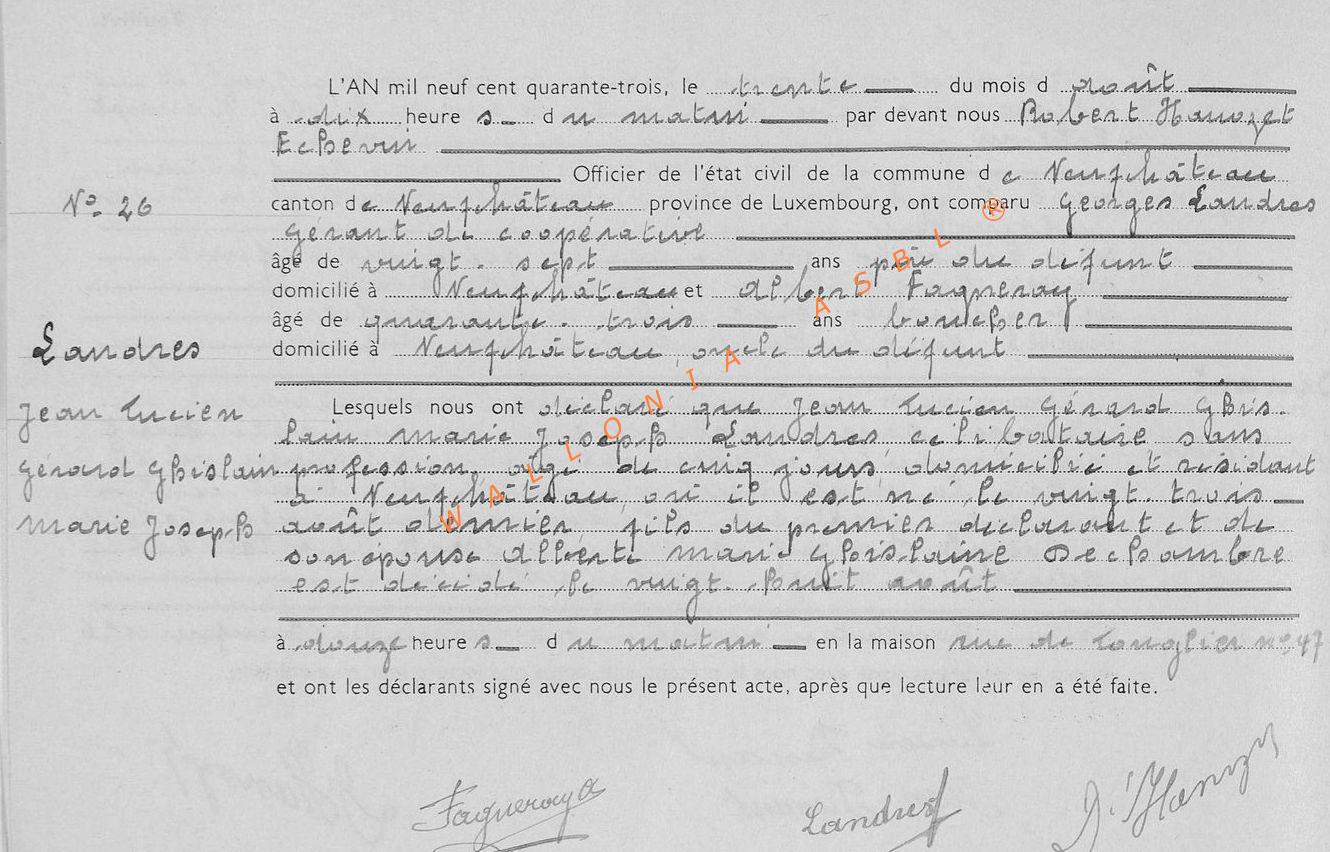 L'AN mil neuf cent quarante-trois, le trente du mois d août
à dix heure s du matin par devant nous Robert Hanozet
Echevin
Officier de l'état civil de la commune de Neufchâteau
N° 26
canton de Neufchâteau province de Luxembourg, ont comparu Georges Landres
gérant de coopérative
âgé de vingt-sept ans père du défunt
domicilié à Neufchâteau et Albert Fagneray
âgé de quarante-trois ans boucher
Landres
domicilié à Neufchâteau, oncle du défunt
Jean Lucien
Lesquels nous ont déclaré que Jean Lucien Gérard Ghis-
lain Marie Joseph Landres célibataire sans
Gérard Ghislain
profession, âgé de cinq jours, domicilié et résidant
à Neufchâteau, où il est né le vingt trois
Marie Joseph
août dernier, fils du premier déclarant et de
son épouse Alberte Marie Ghislaine Dechambre
est décédé le vingt-huit août
à douze heure s du matin en la maison rue de Longlier n° 47
et ont les déclarants signé avec nous le présent acte, après que lecture leur en a été faite.
WALLONIA ASBL ®
Landres